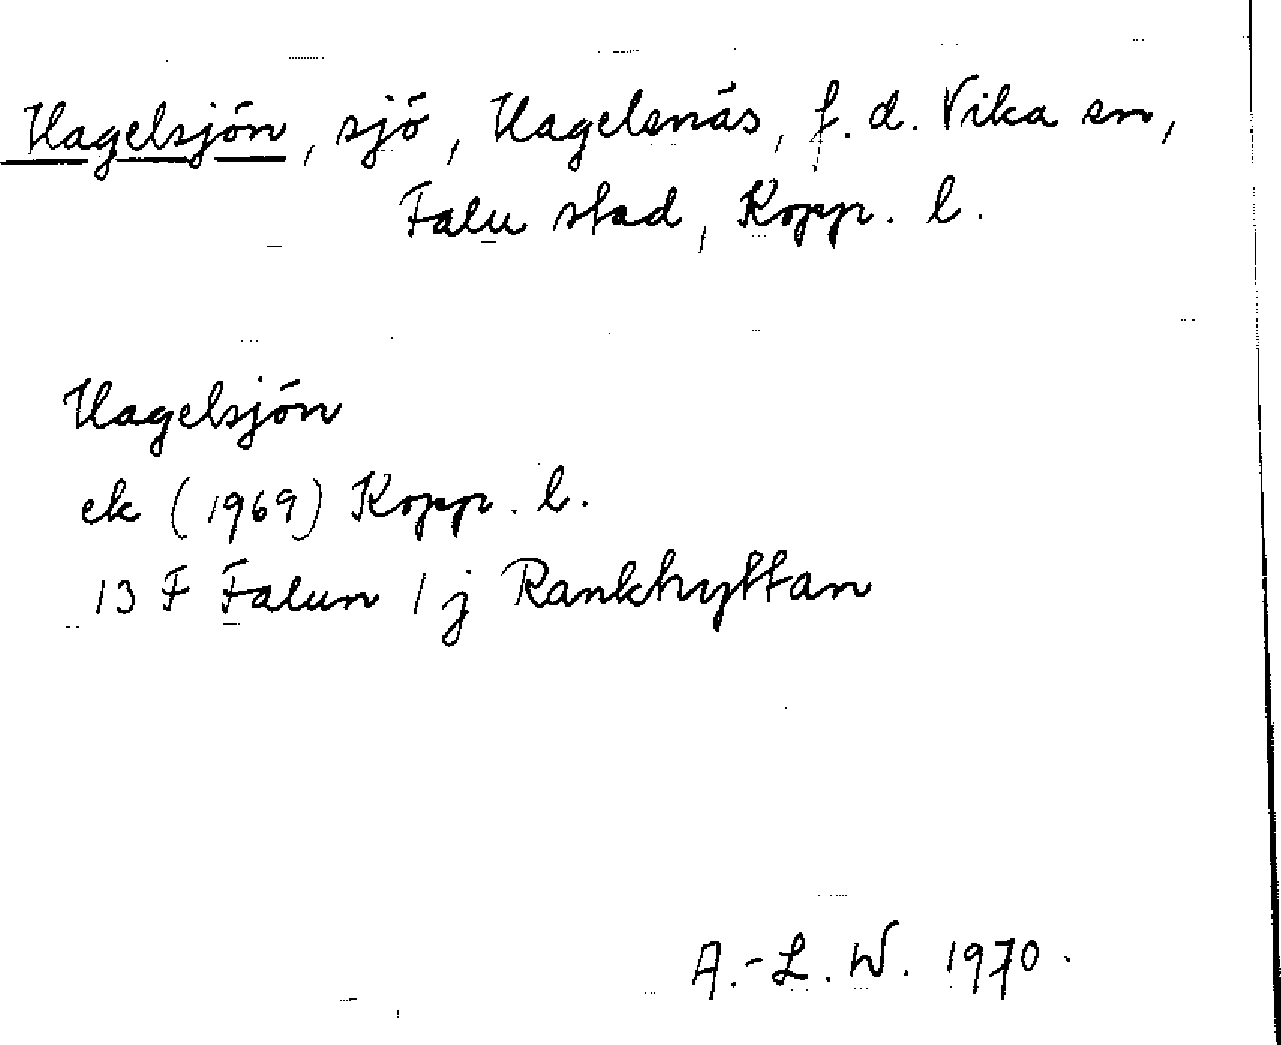 Hagelsjön, sjö, Hagelsnäs, f.d. Vika sn,
Falu stad, Kopp. l.
Hagelsjön
ek (1969) Kopp. l.
13 F Falun 1 j Rankhyttan
A.-L. W. 1970.